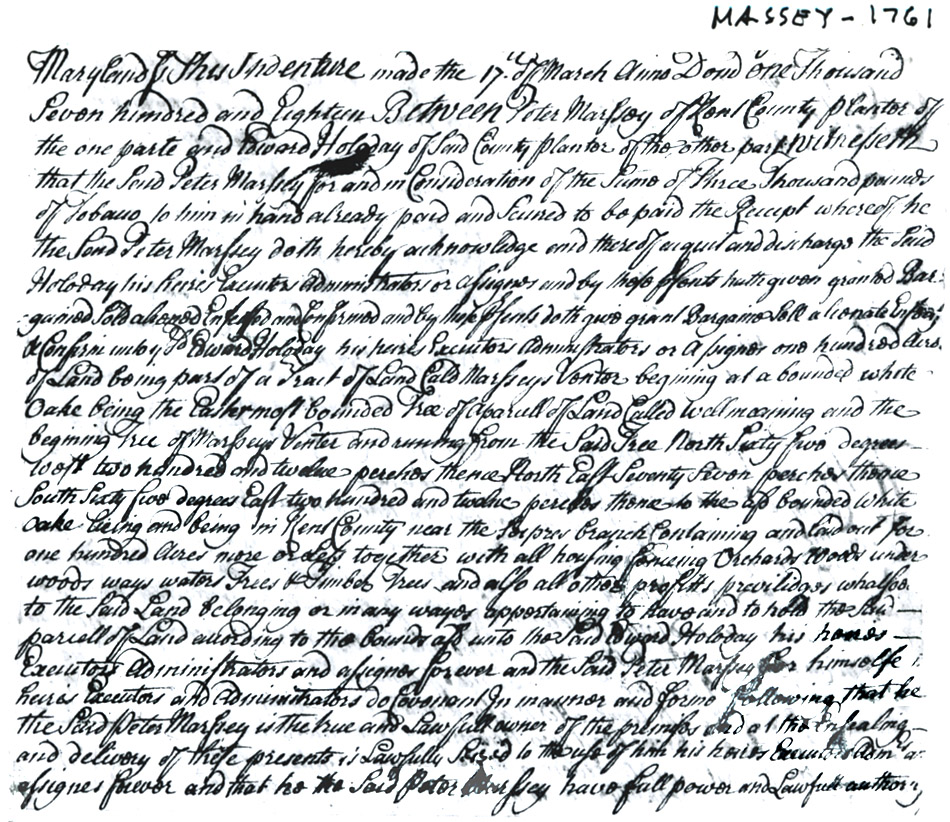 MASSEY - 1761
Maryland ss This Indenture made the 17th of March Anno Domi one Thousand
Seven hundred and Eighteen Between Peter Marssey of Kent County planter of
the one parte and Edward Holoday of Said County planter of the other part Witnesseth
that the Said Peter Marssey for and in Consideration of the Sume of Three Thousand pounds
of Tobacco to him in hand already paid and Secured to be paid the Receipt whereof he
the Said Peter Marssey doth hereby acknowledge and thereof acquit and discharge the Said
Holoday his heires Executors Administrators or Assignes and by these psents hath given granted Bar-
gained Sold aliened Enfeofed and Confirmed and by these psents doth give grant Bargaine Sell alienate Enfeof
& Confirm unto ye Sd Edward Holoday his heires Executors Administrators or Assignes one hundred Acres
of Land being part of a Tract of Land Calld Marsseys Venter begining at a bounded white
Oake being the Eastermost bounded Tree of a parcell of Land Called Well meaning and the
begining Tree of Marsseys Venter and runing from the Said Tree North Sixty five degrees
West two hundred and twelve perches thence North East Seventy Seven perches thence
South Sixty five degrees East two hundred and twelve perches thence to the afd bounded white
Oake lieing and being in Kent County near the Sipres branch Containing and laid out for
one hundred Acres more or less together with all housing fencing Orchards Woods under
woods ways waters Trees & Timber Trees and also all other profitts previlidges whatsoe
to the Said Land belonging or in any wayes appertaining to have and to hold the Said
parcell of Land according to the bounds afd unto the Said Edward Holoday his heires
Executors Administrators and assignes forever and the Said Peter Marssey for himselfe
heires Executors and Administrators do Covenant In manner and forme following that he
the Said Peter Marssey is the true and Lawfull owner of the premises and at the Ensealing
and delivery of these presents is Lawfully Seized to the use of him his heires Execut: Adm:
assignes forever and that he the Said Peter Marssey have full power and Lawfull authory